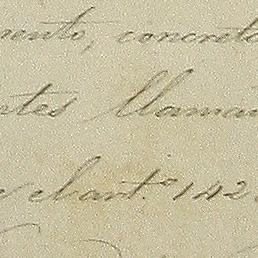 mento, concreta
ntes llaman
el art.º 142